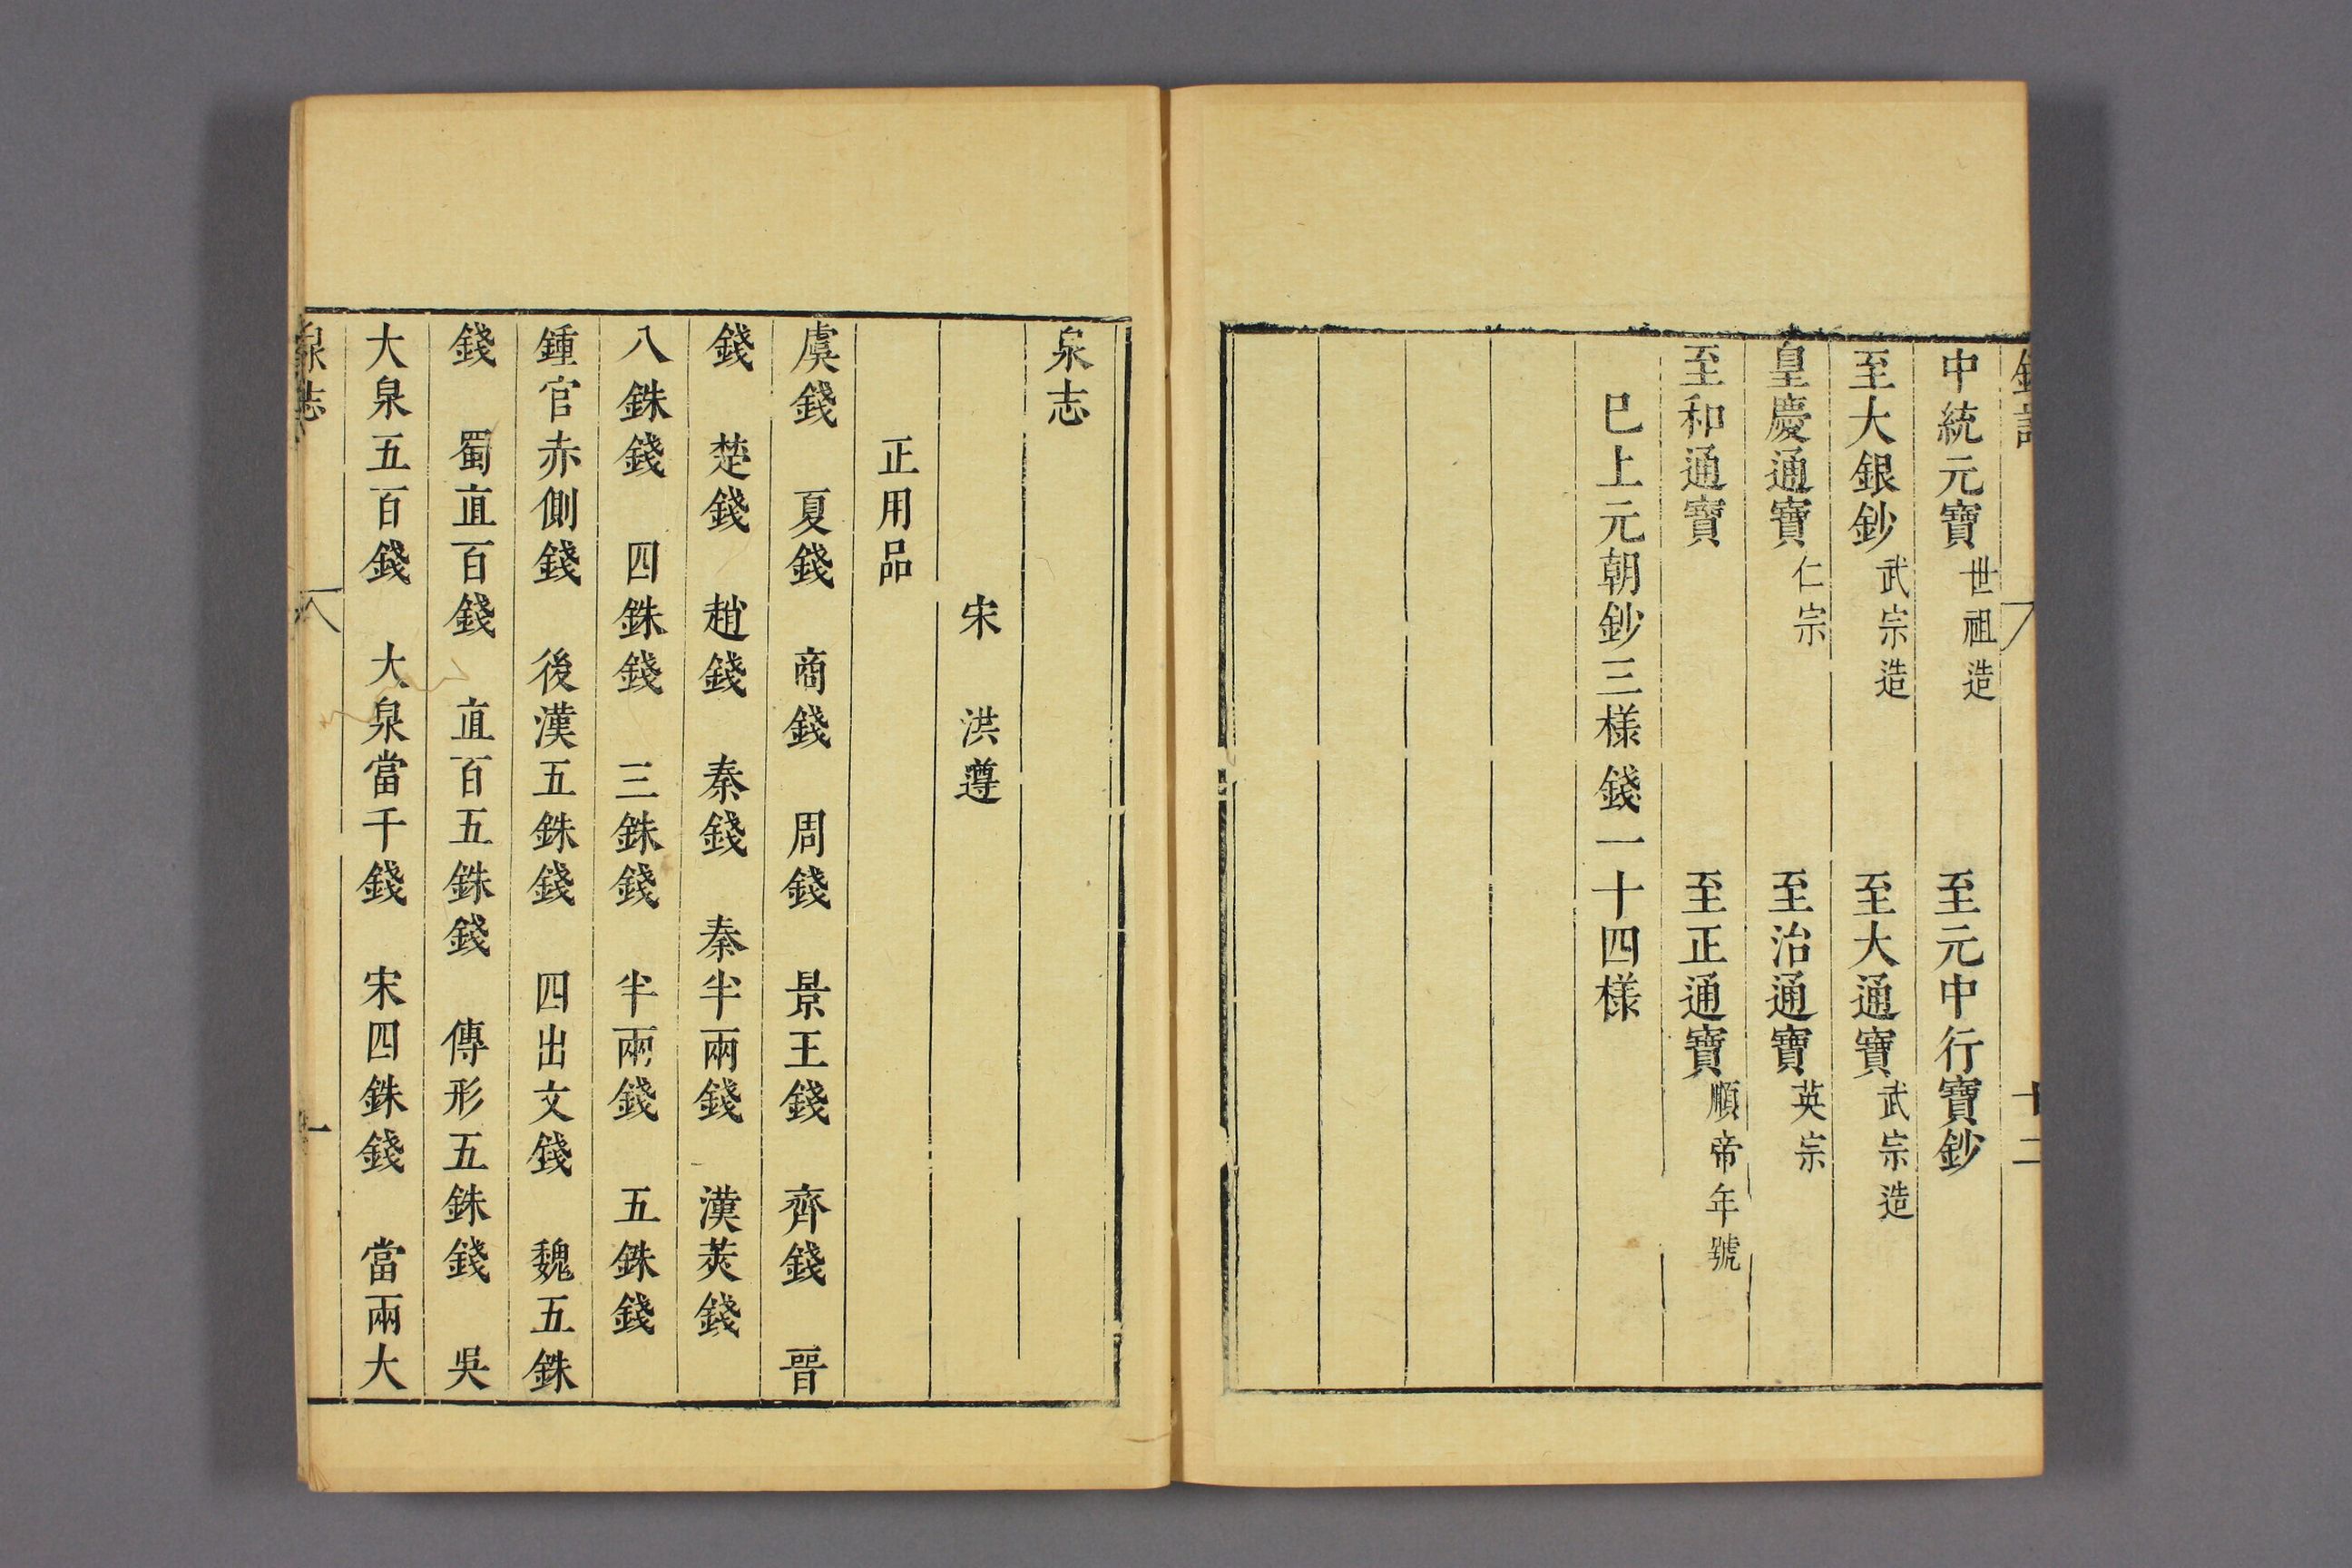 中統元寶世祖造　至元中行寶鈔
至大銀鈔武宗造　至大通寶武宗造
皇慶通寶仁宗　至治通寶英宗
至和通寶　至正通寶順帝年號
巳上元朝鈔三樣錢一十四樣
十二
泉志
宋　洪遵
正用品
虞錢　夏錢　商錢　周錢　景王錢　齊錢　晋
錢　楚錢　趙錢　秦錢　秦半兩錢　漢莢錢
八銖錢　四銖錢　三銖錢　半兩錢　五銖錢
鍾官赤側錢　後漢五銖錢　四出文錢　魏五銖
錢　蜀直百錢　直百五銖錢　傳形五銖錢　吳
大泉五百錢　大泉當千錢　宋四銖錢　當兩大
泉志　一